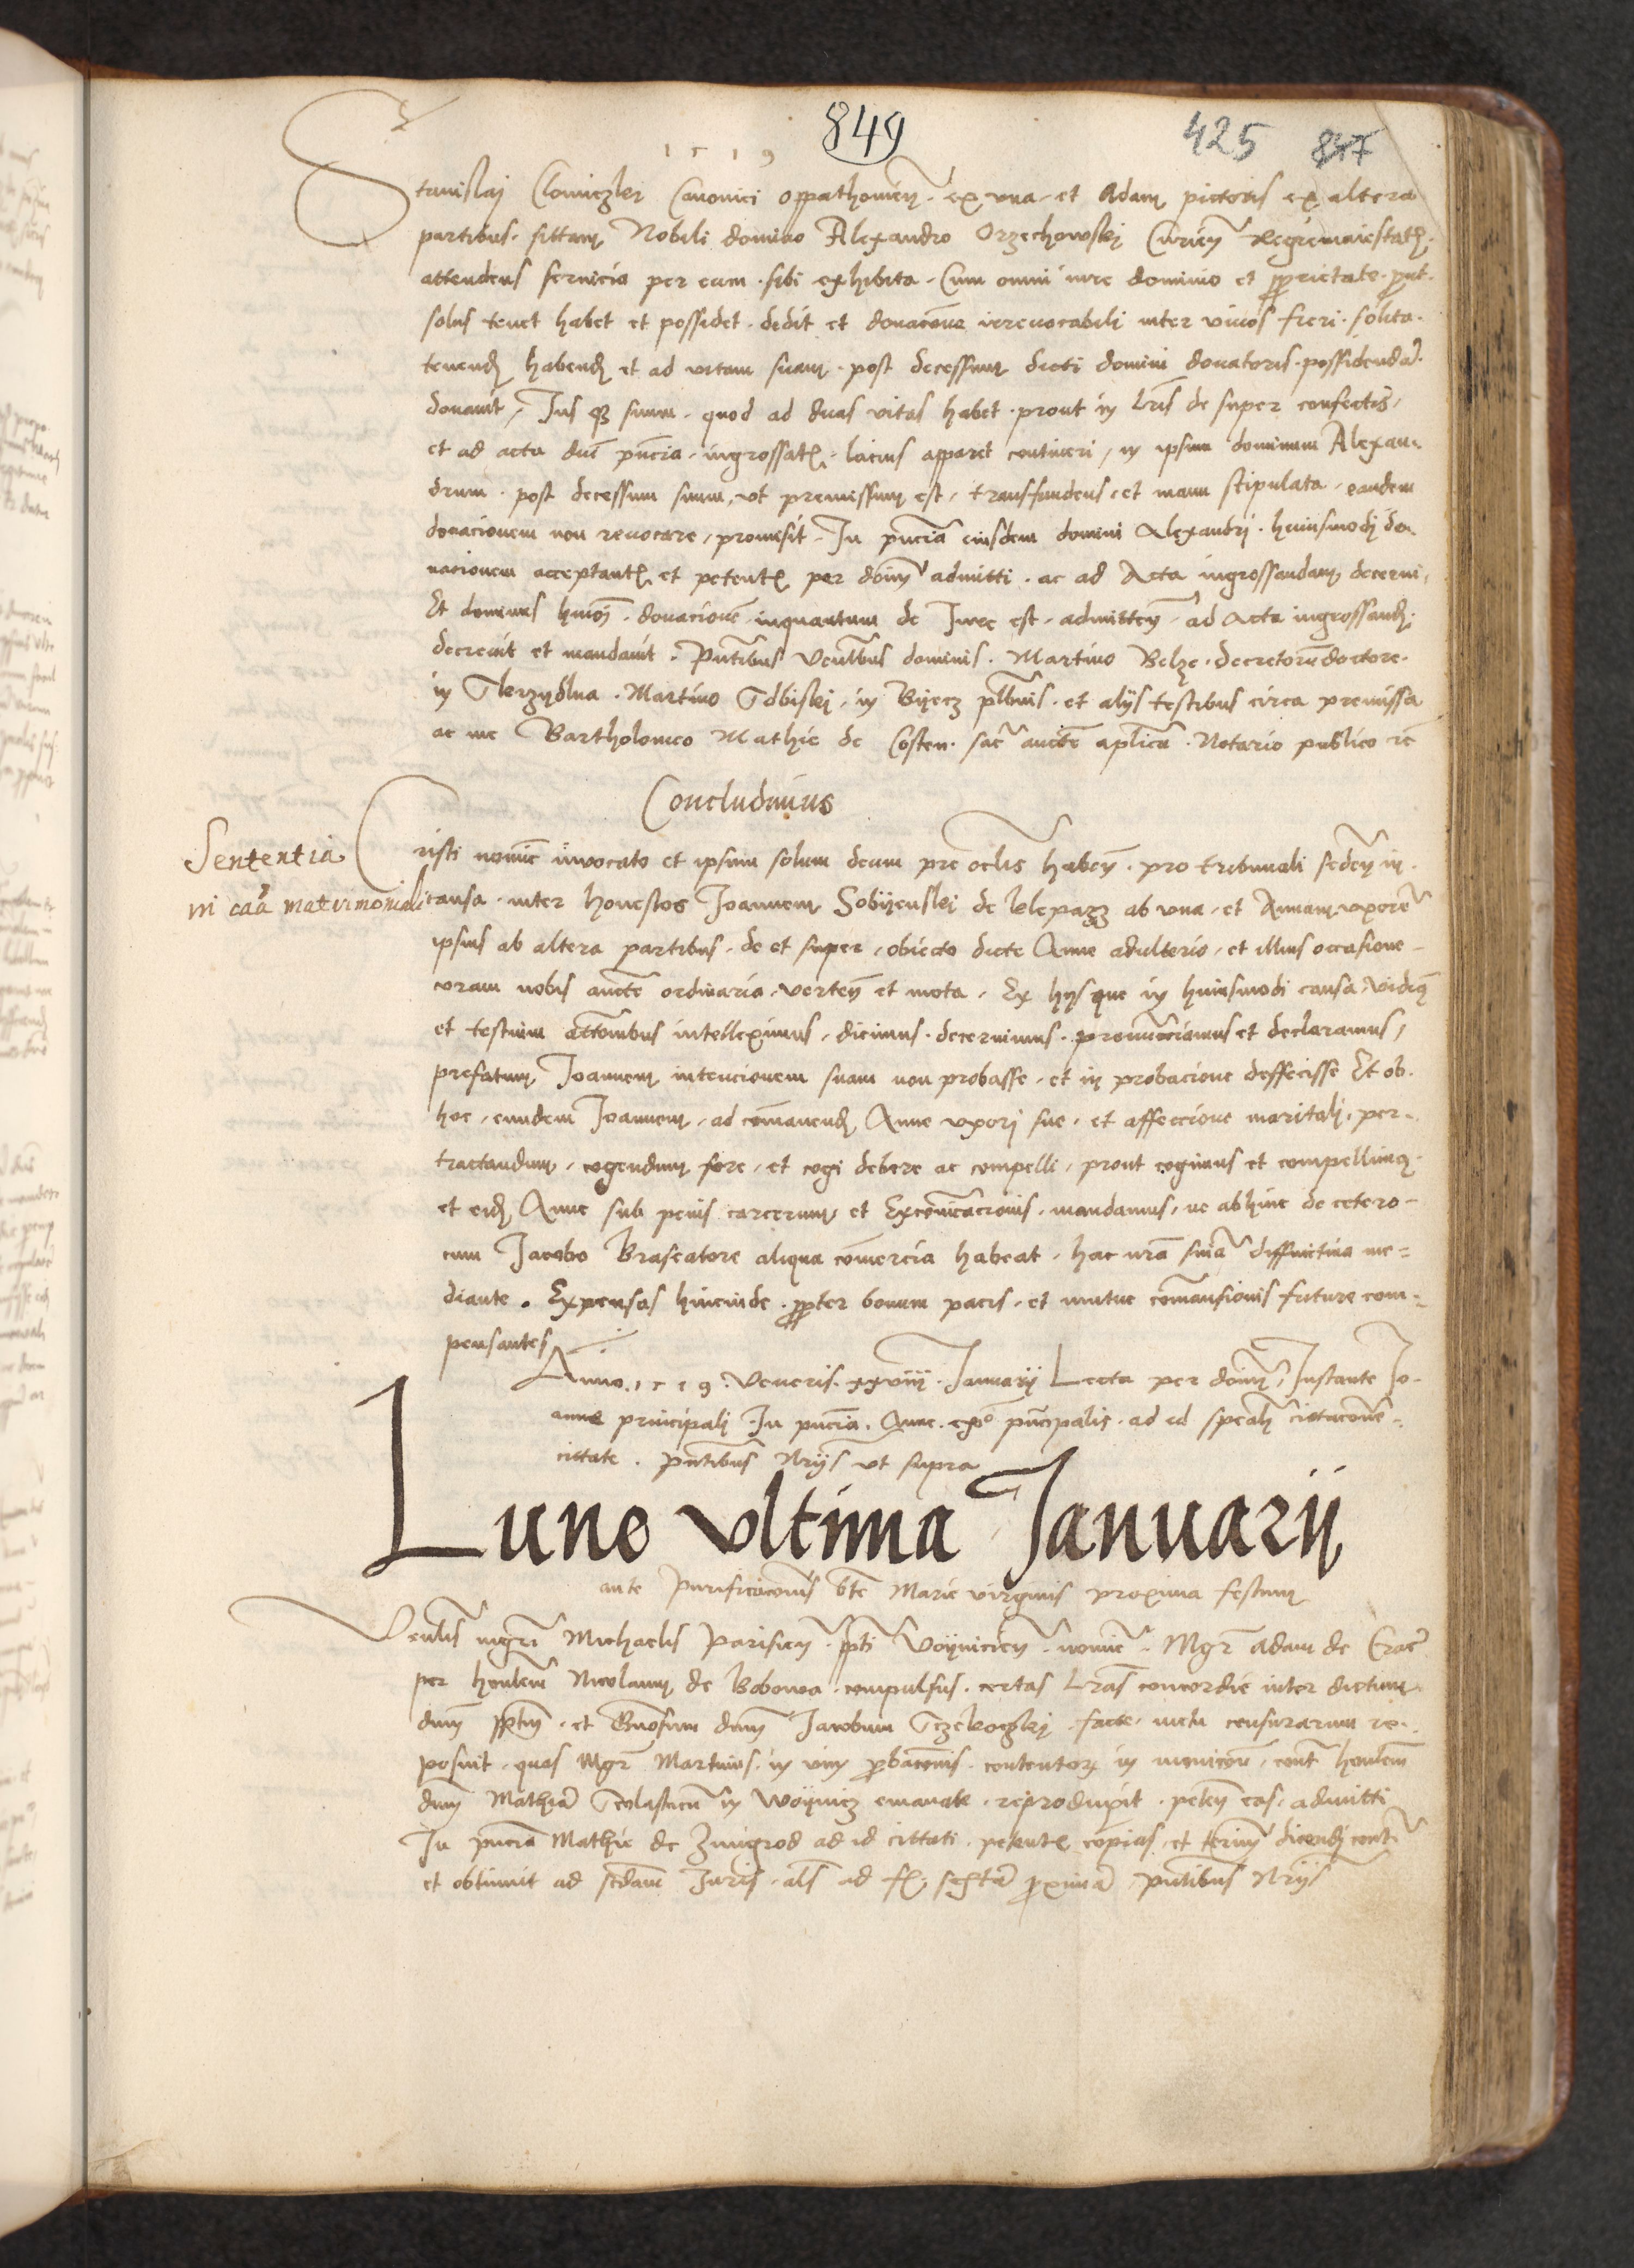 849
425 847
1519
Stanislaj Clomiczky Canonici oppathovien ex vna et Adam pictoris ex altera
partibus sittam Nobili domino Alexandro Orzechowskj Curien Regie maiestatis
attendens servicia per eum sibi exhibita Cum omni iure dominio et proprietate prout
solus tenet habet et possidet dedit et donacone irrevocabili inter vivos fieri solita
tenend habend et ad vitam suam post decessum dicti domini donatoris possidendam
donavit Jus quod suum quod ad duas vitas habet prout in lris de super confectis
et ad acta dni pncia ingrossatis lacius apparet contineri in ipsum dominum Alexan
drum post decessum suum vt premissum est transfundens et manu stipulata eandem
donacionem non revocare promisit In pncia eiusdem domini Alexandrj huiusmodj do
nacionem acceptantis et petentis per dnm admitti ac ad Acta ingrossandam decerni
Et dominus hmoi donacionem inquantum de Jure est admitten ad Acta ingrossand
decrevit et mandavit Pntibus Venlbus dominis Martino Belze decretorum doctore
in Martino in Byecz plbnis et alijs testibus circa premissa
ac me Bartholomeo Mathie de Costen sac aucte aplica Notario publico etc
Concludimus
Sententia
in caa matrimoniali
Cristi nomine invocato et ipsum solum deum pre oclis haben pro tribunali seden in
causa inter honestos Joannem Sobyenskj de Clepaz ab vna et Annam vxorem
ipsius ab altera partibus de et super obiecto dicte Anne adulterio et illius occasione
coram nobis aucte ordinaria verten et mota Ex hijs que in huiusmodi causa vidimus
et testium attonibus intelleximus dicimus decernimus pronunciamus et declaramus
prefatum Joannem intencionem suam non probasse et in probacione deffecisse Et ob
hoc eundem Joannem ad comanend Anne vxorj sue et affeccione maritalj per
tractandum cogendum fore et cogi debere ac compelli prout cogimus et compellimus
et eid Anne sub penis carcerum et Excomunicacionis mandamus ne abhinc de cetero
cum Jacobo Braseatore aliqua comercia habeat hac nra snia diffinitiva me
diante Expensas hincinde propter bonum pacis et mutue comansionis future com
pensantes
Anno 1519 Veneris xxviij Januarij Lecta per dnm Instante Jo
anne principalj In pncia Anne ex principalis ad id spealr citacone
cittate pntibus Nrijs vt supra
Lune vltima Januarij
ante Purificacionis bte Marie virginis proxima festum
Venlis mgri Michaelis Parisien ppti Voynicien nomine Mgr Adam de Crac
per honlem Nicolaum de Bobowa compulsus certas lras concordie inter dictum
dnm pptm et Gnosum dnm Jacobum facte metu censurarum re
posuit quas Mgr Martinus in vim probaconis contentorum in monicone contra honlem
dnm Mathiam Scolasticum in Woynicz emanate reproduxit peten eas admitti
In pncia Mathie de Zmigrod ad id cittati petentis copias et terminum dicendj contra
et obtinuit ad scdam Juris als ad f sextam proximam pntibus Nrijs